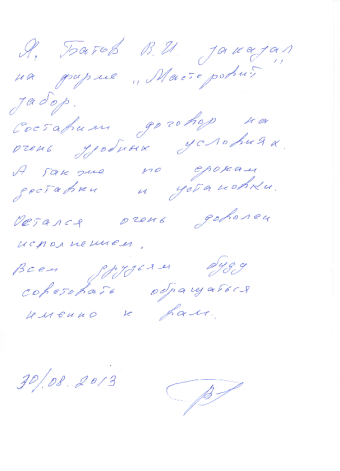 Я, Батов В.И заказал
на фирме „Мастеровит"
забор.
Составили договор на
очень удобных условиях.
А также по срокам
доставки и установки.
Остался очень доволен
исполнением.
Всем друзьям буду
советовать обращаться
именно к вам.
30/.08.2013